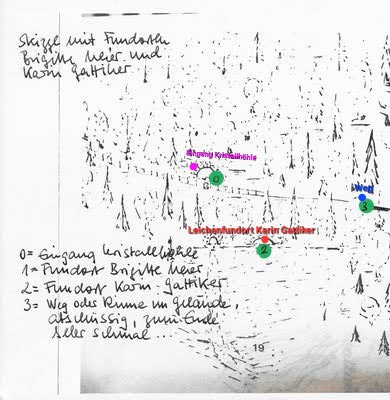 Skizze mit Fundorten
Brigitte Meier und
Karin Gattiker
Eingang Kristallhöhle
0
Weg
3
Leichenfundort Karin Gattiker
2
0 = Eingang Kristallhöhle
1 = Fundort Brigitte Meier
2 = Fundort Karin Gattiker
3 = Weg oder Rinne im Gelände,
abschüssig, zum Ende
sehr schmal ...
19